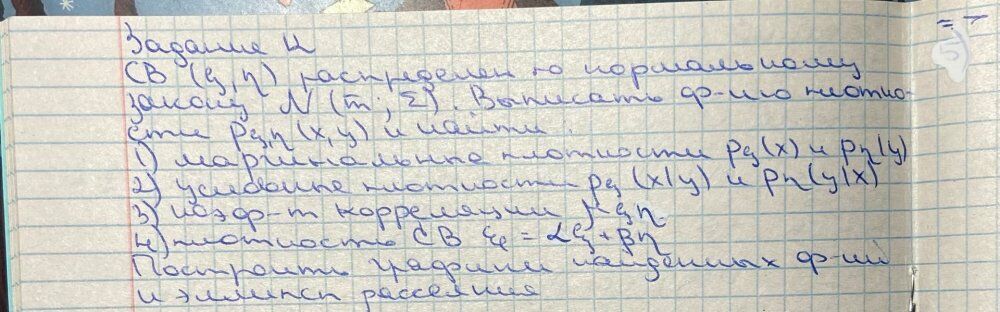 Задание 4
СВ (ξ, η) распределен по нормальному
закону N (m̄, Σ). Выписать ф-ию плотно-
сти pξη (x, y) и найти:
1) маргинальные плотности pξ(x) и pη(y)
2) условные плотности pξ(x|y) и pη(y|x)
3) коэф-т корреляции rξη
4) плотность СВ = αξ + βη
Построить графики найденных ф-ий
и эллипсы рассеяния
= 7
5)